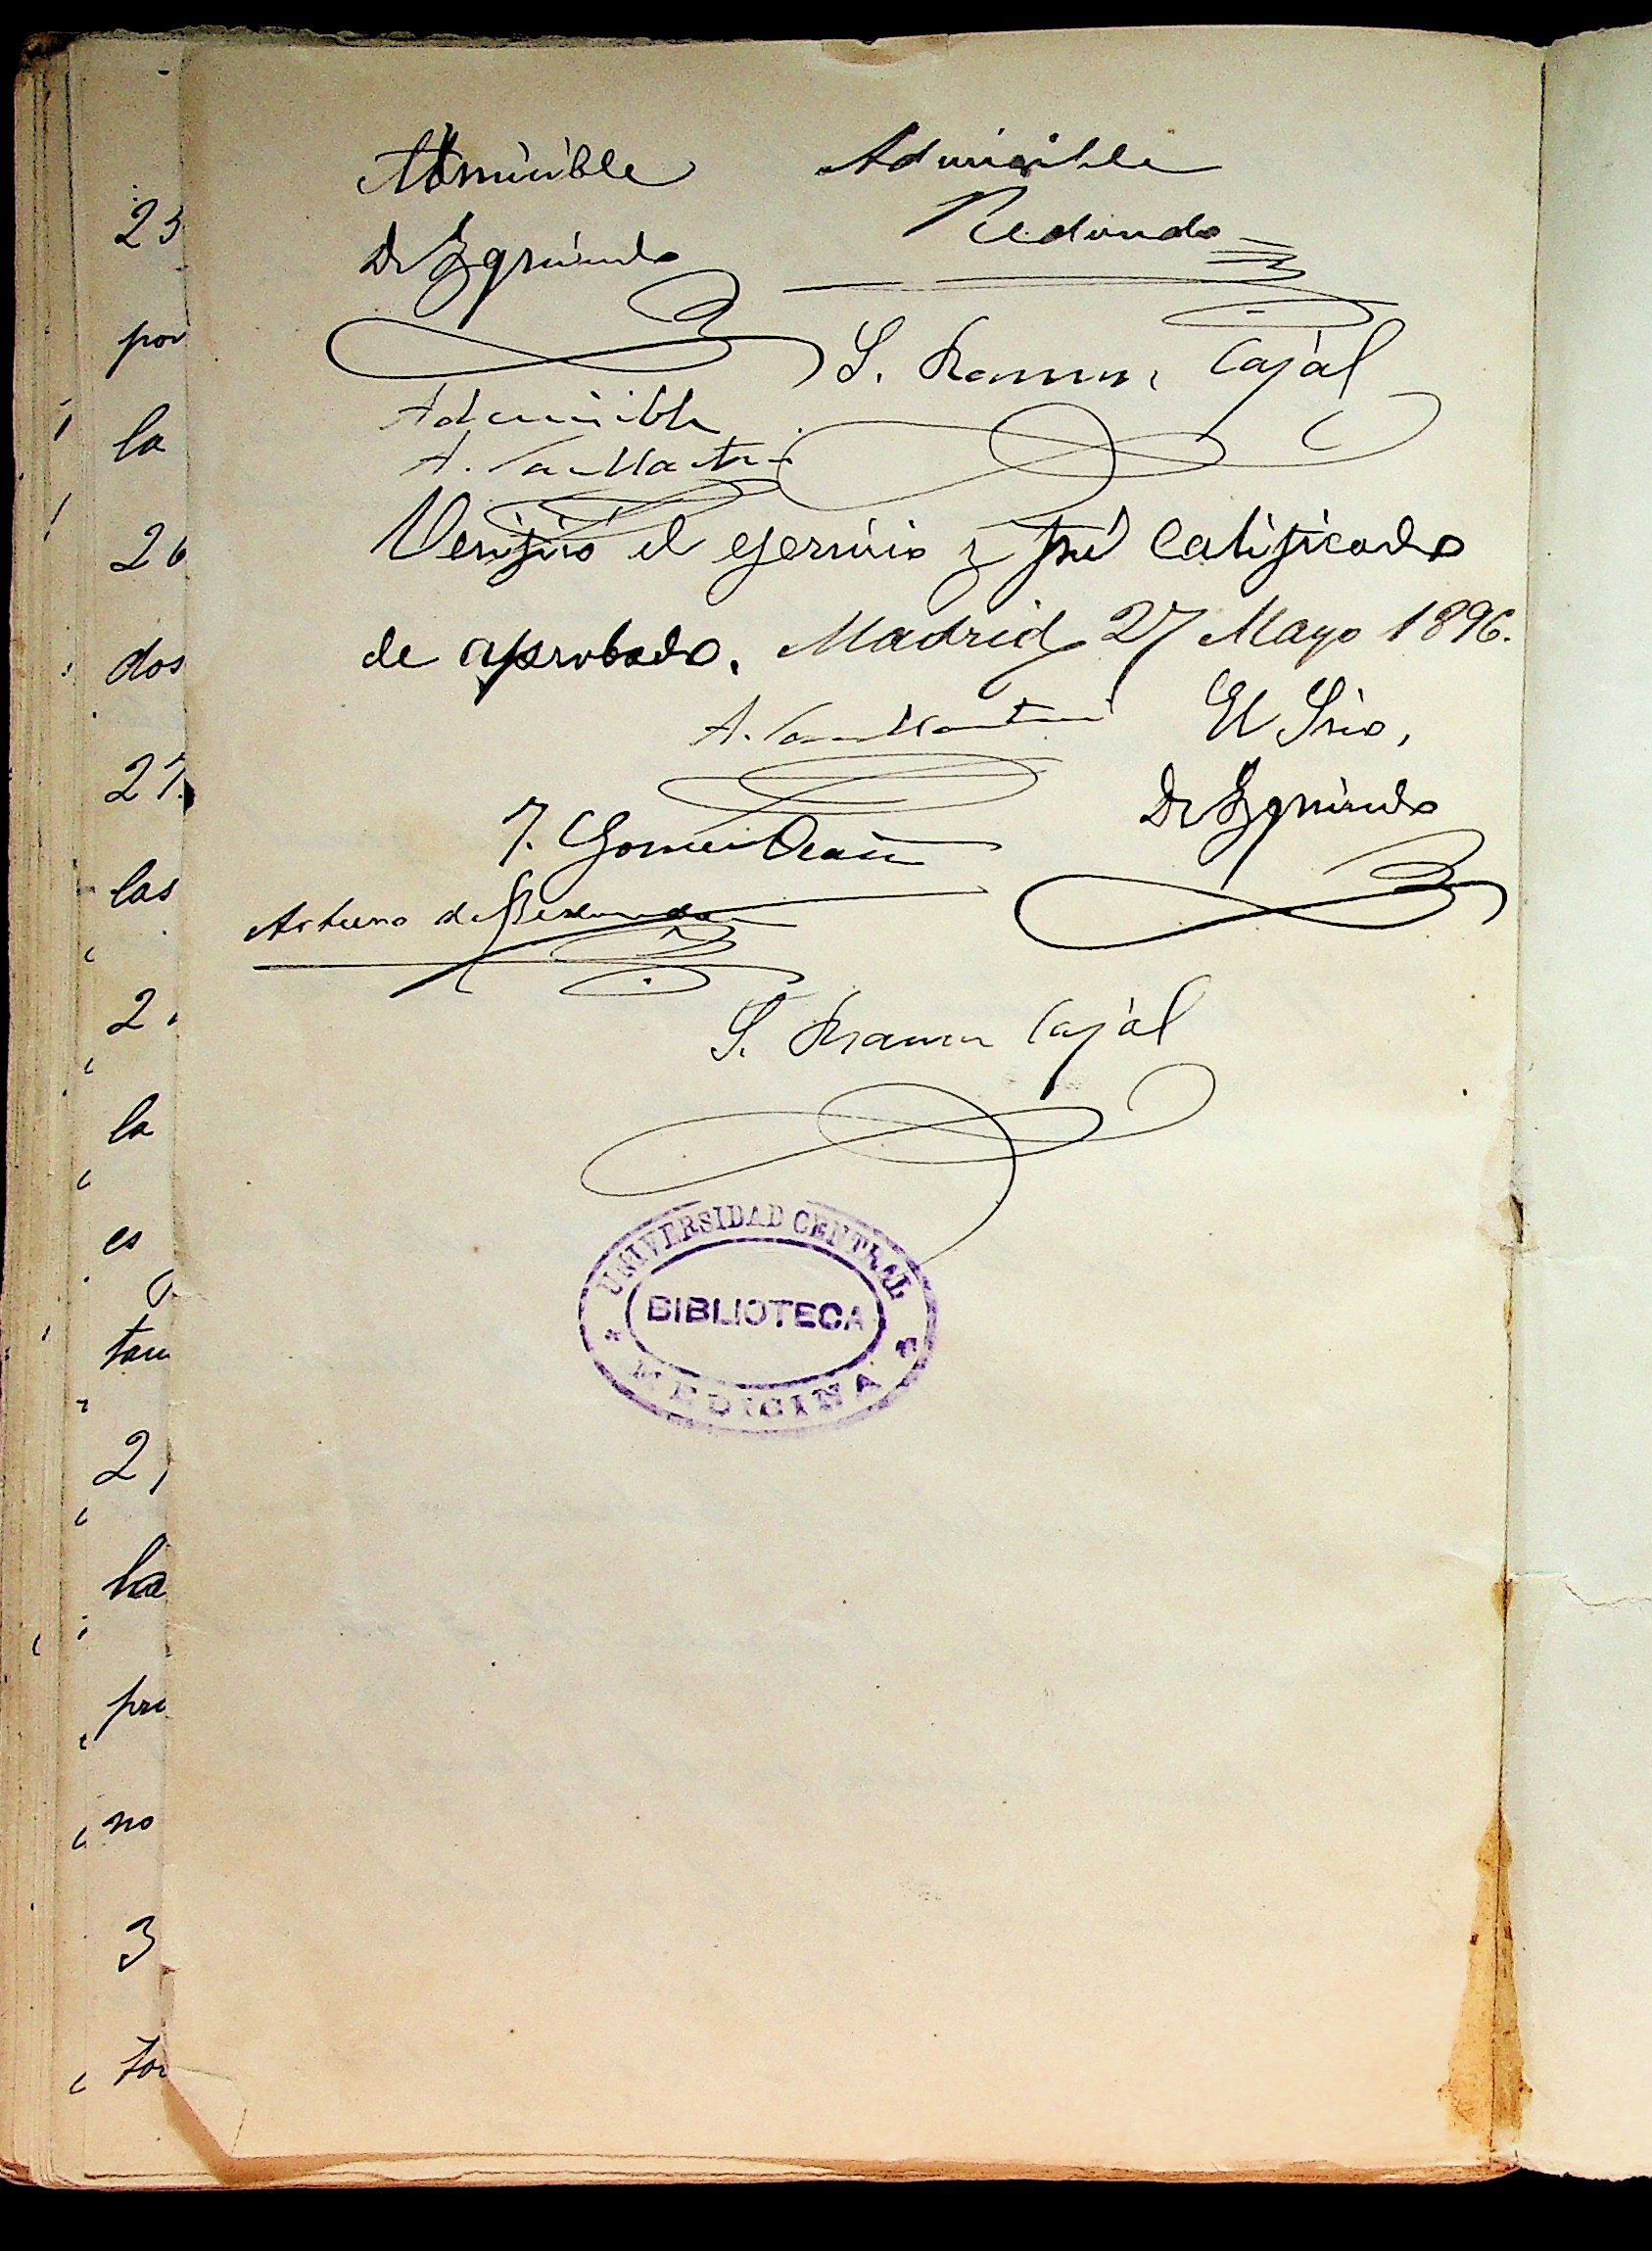 Admisible
Admisible
Dr Izquierdo
Redondo
S. Ramon Cajal
Admisible
A. San Martin
Verificó el ejercicio y fué calificado
de aprobado. Madrid 27 Mayo 1896.
A. San Martin
El Srio,
Dr Izquierdo
J. Gomez Ocaña
Arturo de Redondo
S. Ramon Cajal
UNIVERSIDAD CENTRAL
BIBLIOTECA
MEDICINA
23
por
la
26
dos
27.
las
2
la
es
2
ha
no
3